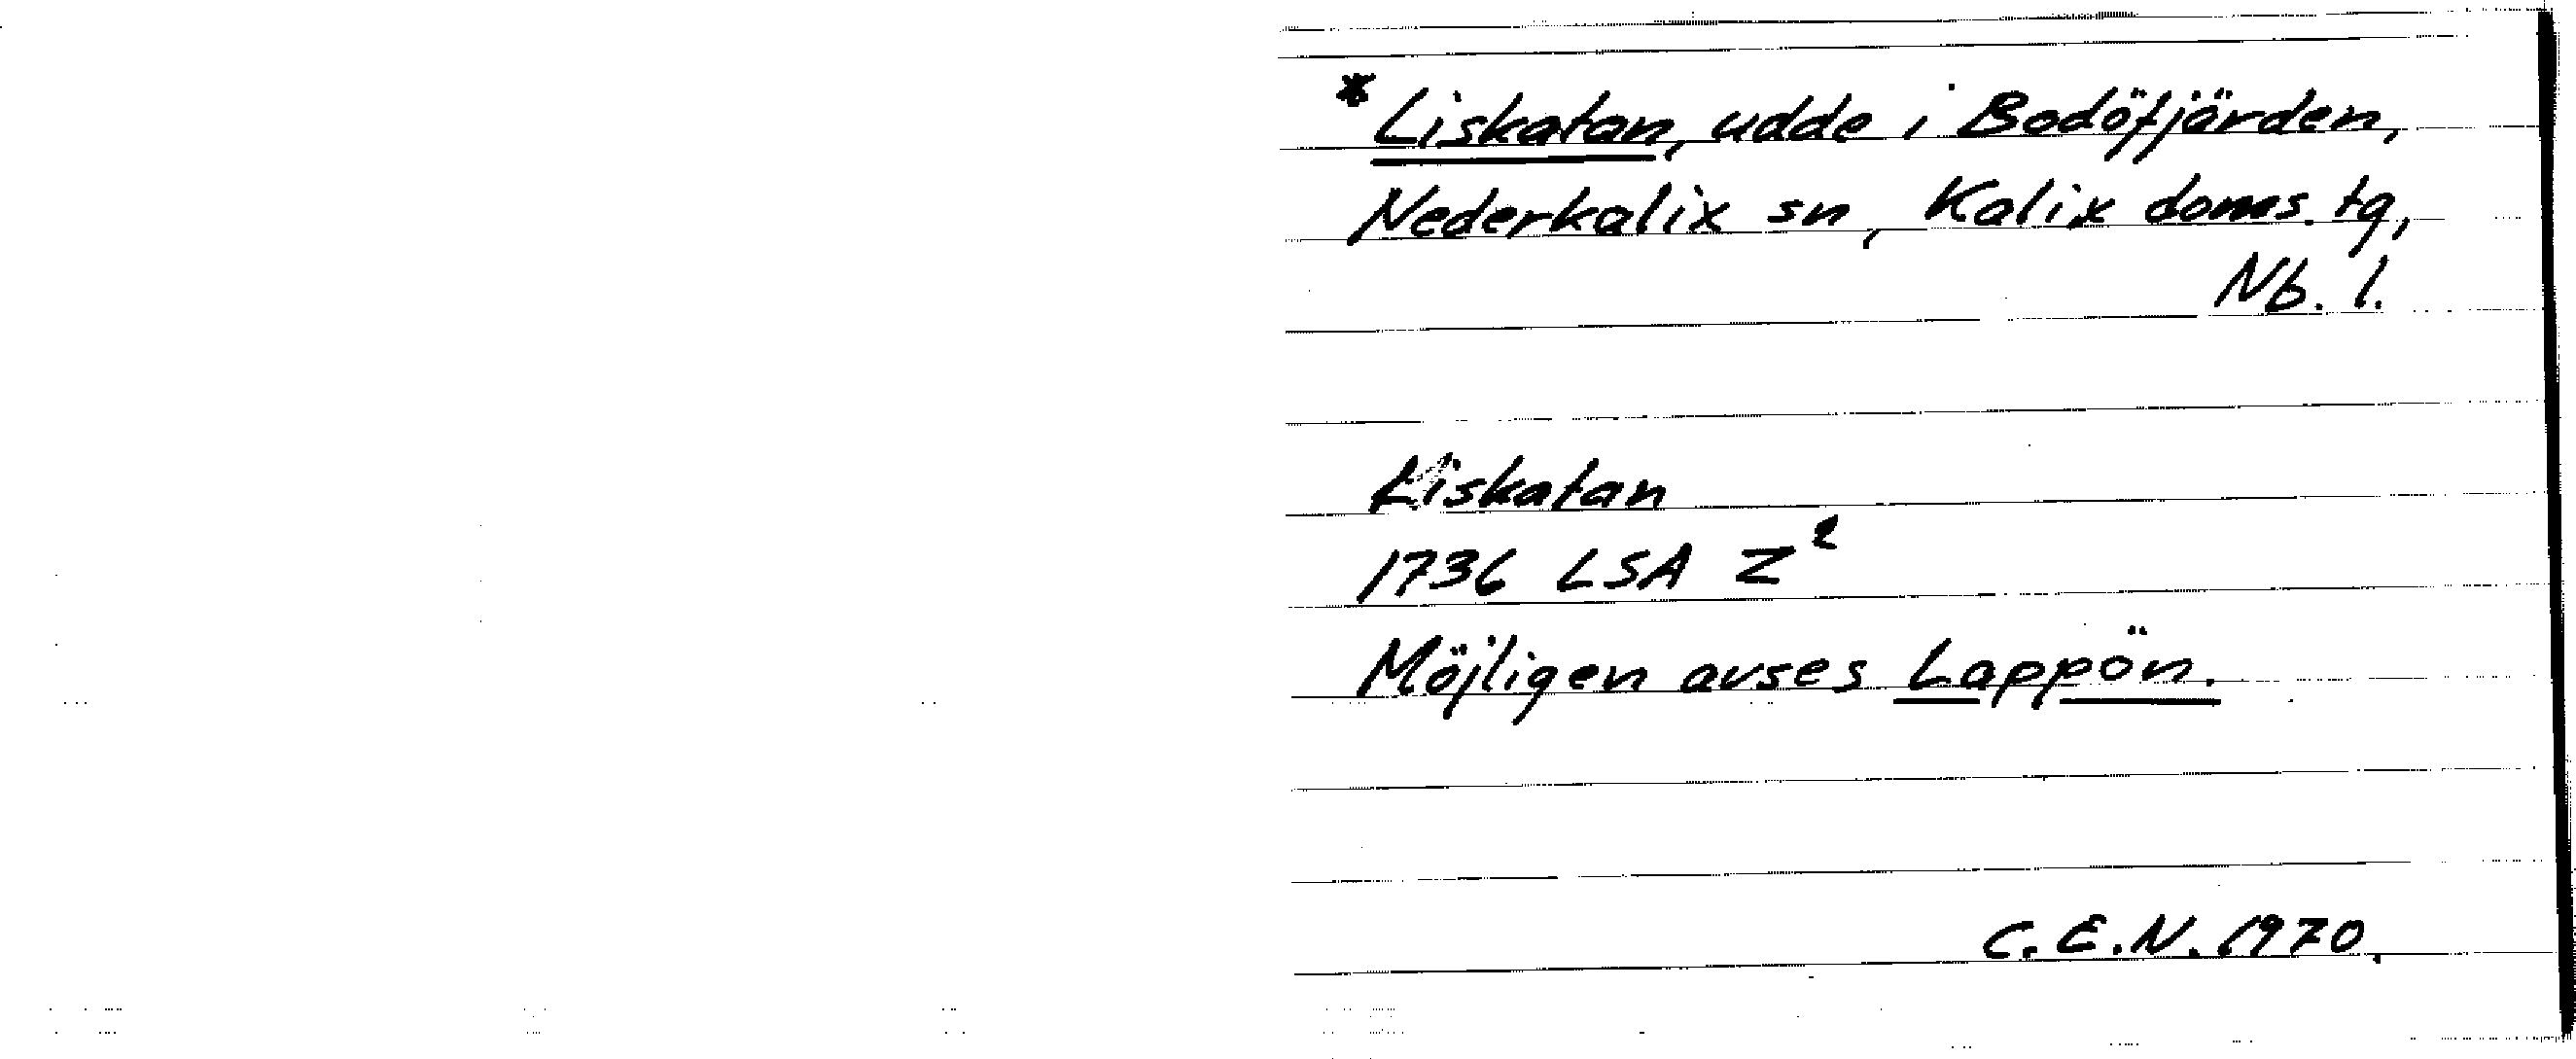 * Liskatan, udde i Bodöfjärden,
Nederkalix sn, Kalix doms. tg,
Nb. l.
Liskatan
1736 LSA Z²
Möjligen avses Lappön.
C.E.N. 1970.